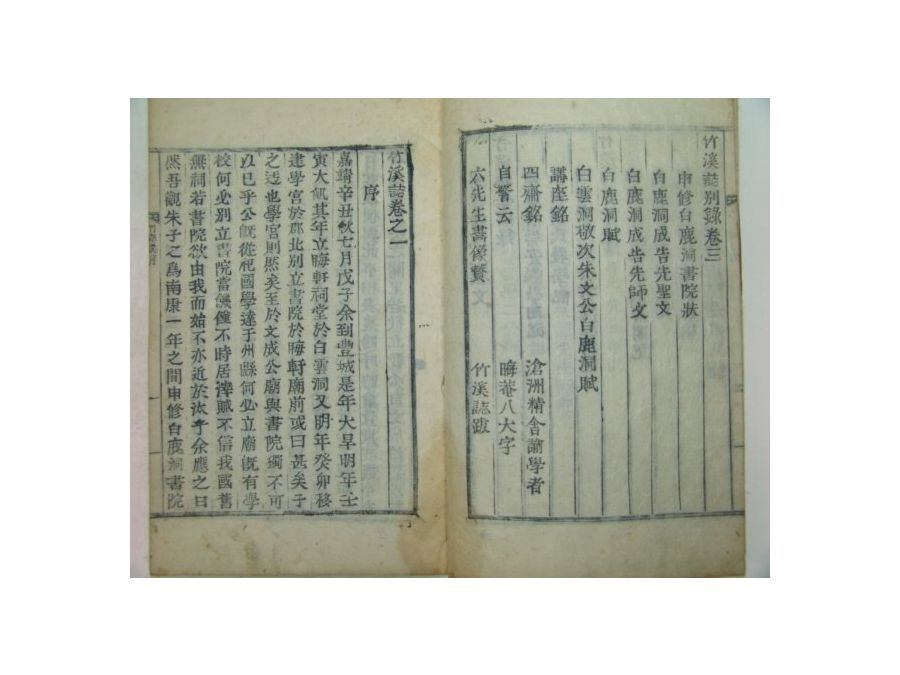 竹溪誌別錄卷三
申修白鹿洞書院狀
白鹿洞成告先聖文
白鹿洞成告先師文
白鹿洞賦
白雲洞敬次朱文公白鹿洞賦
講座銘 滄洲精舍諭學者
四齋銘 晦菴八大字
自警云
六先生畵像賛 竹溪誌跋
竹溪誌卷之一
序
嘉靖辛丑秋七月戊子余到豐城是年大旱明年壬
寅大飢其年立晦軒祠堂於白雲洞又明年癸卯移
建學宮於郡北別立書院於晦軒廟前或曰甚矣子
之迂也學宮則然矣至於文成公廟與書院獨不可
以已乎公旣從祀國學達于州縣何必立廟旣有學
校何必別立書院當饑饉不時居滓賦不信我國舊
無祠若書院欲由我而始不亦近於汰乎余應之曰
然吾觀朱子之爲南康一年之間申修白鹿洞書院